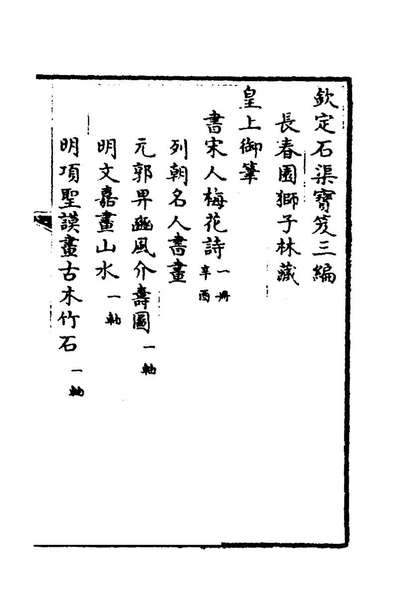 欽定石渠寶笈三編
長春園獅子林藏
皇上御筆
書宋人梅花詩一冊辛酉
列朝名人書畫
元郭畀豳風介壽圖一軸
明文嘉畫山水一軸
明項聖謨畫古木竹石一軸